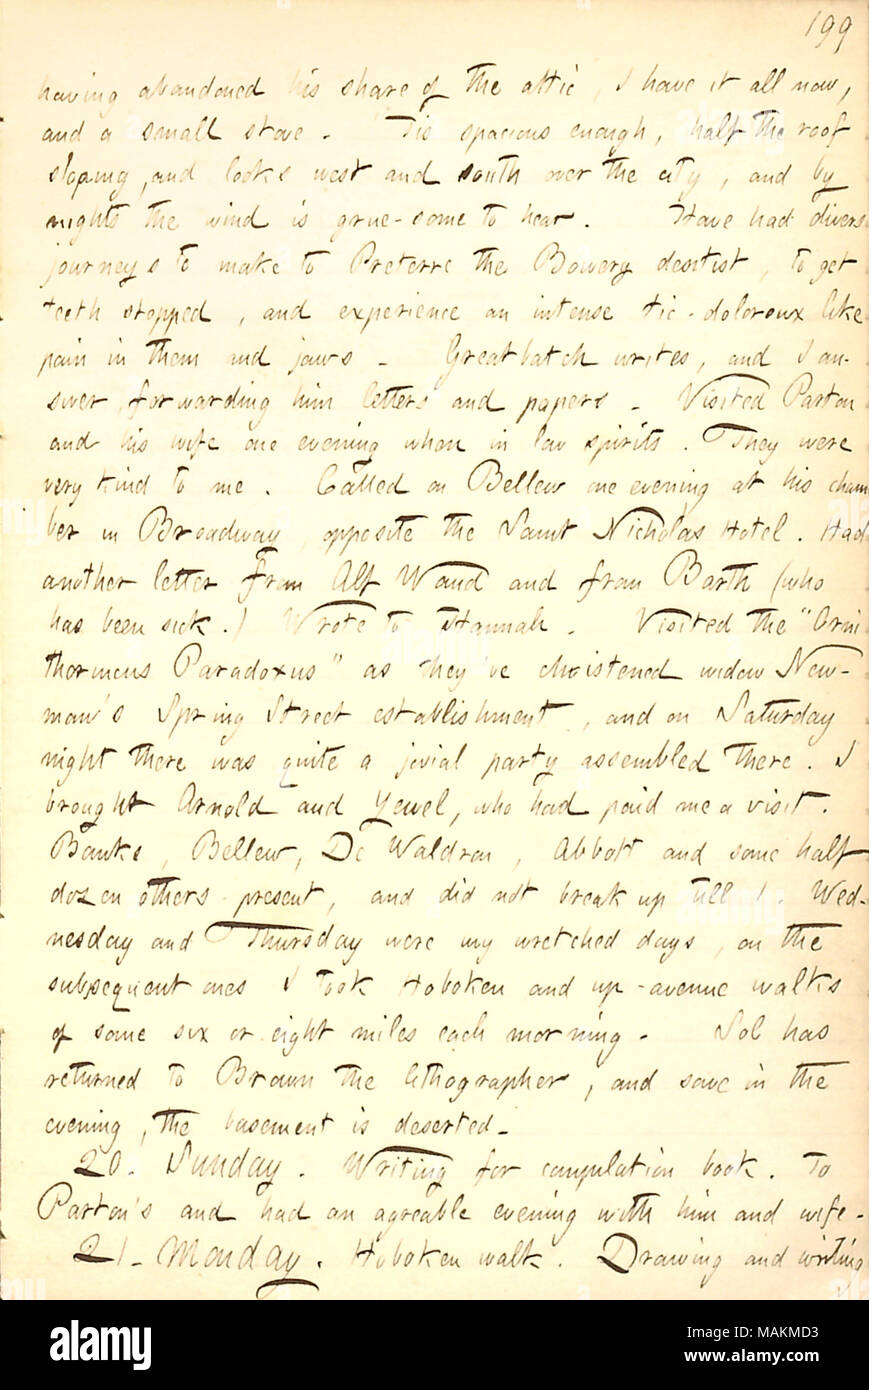 199
having abandoned his share of the attic, I have it all now,
and a small stove. 'Tis spacious enough, half the roof
sloping, and looks west and south over the city, and by
nights the wind is grue-some to hear. Have had divers
journeys to make to Preterre the Bowery dentist, to get
teeth stopped, and experience an intense tic-doloroux like
pain in them and jaws. Greatbatch writes, and I an-
swer, forwarding him letters and papers. Visited Parton
and his wife one evening when in low spirits. They were
very kind to me. Called on Bellew one evening at his cham
ber in Broadway, opposite the Saint Nicholas Hotel. Had
another letter from Alf Waud and from Barth (who
has been sick.) Wrote to Hannah. Visited the "Orni
thorincus Paradoxus" as they've christened widow New-
man's Spring Street establishment, and on Saturday
night there was quite a jovial party assembled there. I
brought Arnold and Yewel, who had paid me a visit.
Banks, Bellew, De Waldron, Abbott and some half
dozen others present, and did not break up till 1. Wed-
nesday and Thursday were my wretched days, on the
subsequent ones I took Hoboken and up-avenue walks
of some six or eight miles each morning. Sol has
returned to Brown the lithographer, and save in the
evening, the basement is deserted.
20. Sunday. Writing for compilation book. To
Parton's and had an agreable evening with him and wife.
21. Monday. Hoboken walk. Drawing and writing
alamy
Image ID: MAKMD3
www.alamy.com